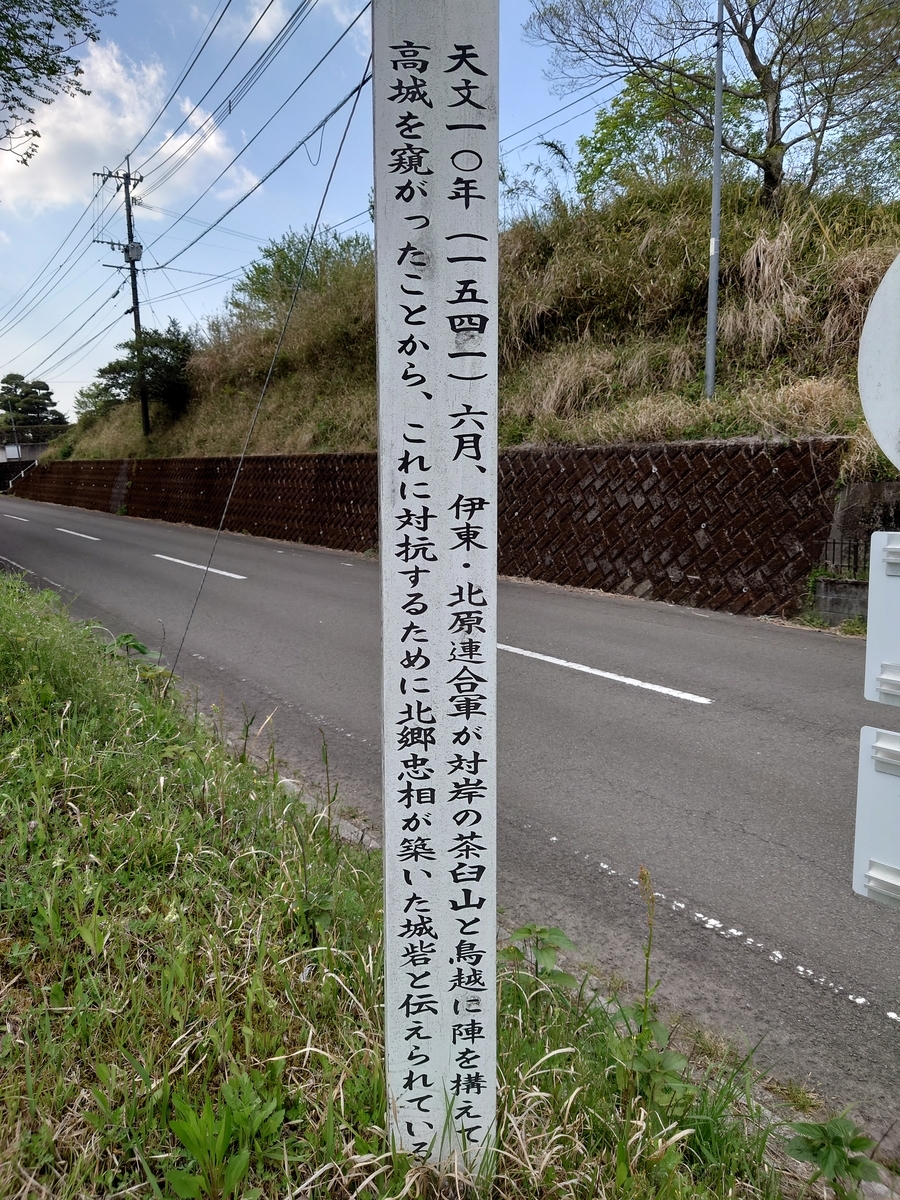 天文一〇年（一五四一）六月、伊東・北原連合軍が対岸の茶臼山と鳥越に陣を構えて
高城を窺がったことから、これに対抗するために北郷忠相が築いた城砦と伝えられている